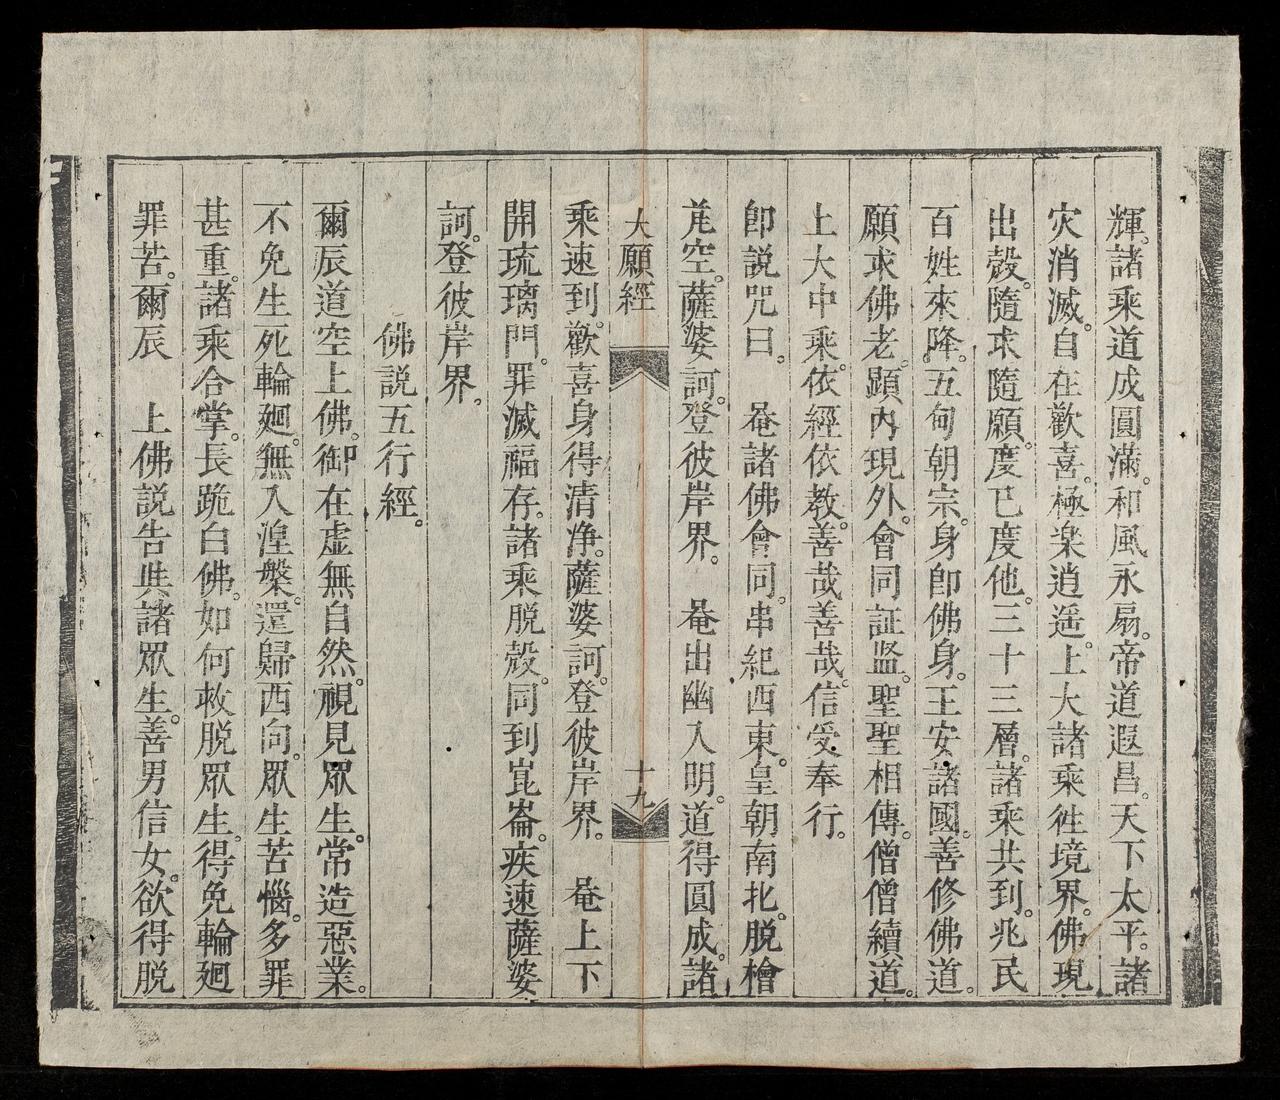 輝。諸乘道成圓滿。和風永扇。帝道遐昌。天下太平。諸
灾消滅。自在歡喜。極楽逍遥。上大諸乘徃境界。佛現
出殼。隨求隨願。度已度他。三十三層。諸乘共到。兆民
百姓來降。五甸朝宗。身卽佛身。王安諸國。善修佛道。
願求佛老。顕內現外。會同証盗。聖聖相傳。僧僧續道。
上大中乘。依經依教。善哉善哉。信受奉行。
卽説咒曰。　菴諸佛會同。串紀西東。皇朝南北。脱檜
芚空。薩婆訶。登彼岸界。　菴出幽入明。道得圓成。諸
大願經　十九
乘速到。歡喜身得清净。薩婆訶。登彼岸界。　菴上下
開琉璃門。罪滅福存。諸乘脱殼。同到崑崙。疾速薩婆
訶。登彼岸界。
佛説五行經。
爾辰道空上佛。御在虛無自然。視見眾生。常造惡業。
不免生死輪廻。無入湼槃。還歸西向。眾生苦惱。多罪
甚重。諸乘合掌。長跪白佛。如何救脱眾生。得免輪廻
罪苦。爾辰　上佛説告與諸眾生。善男信女。欲得脱